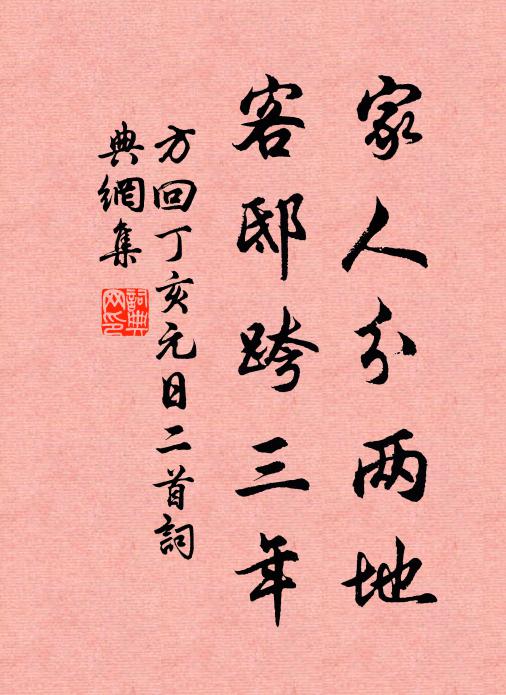 家人分两地
客邸跨三年
方回丁亥元日二首詞
典網集
詞典
网印